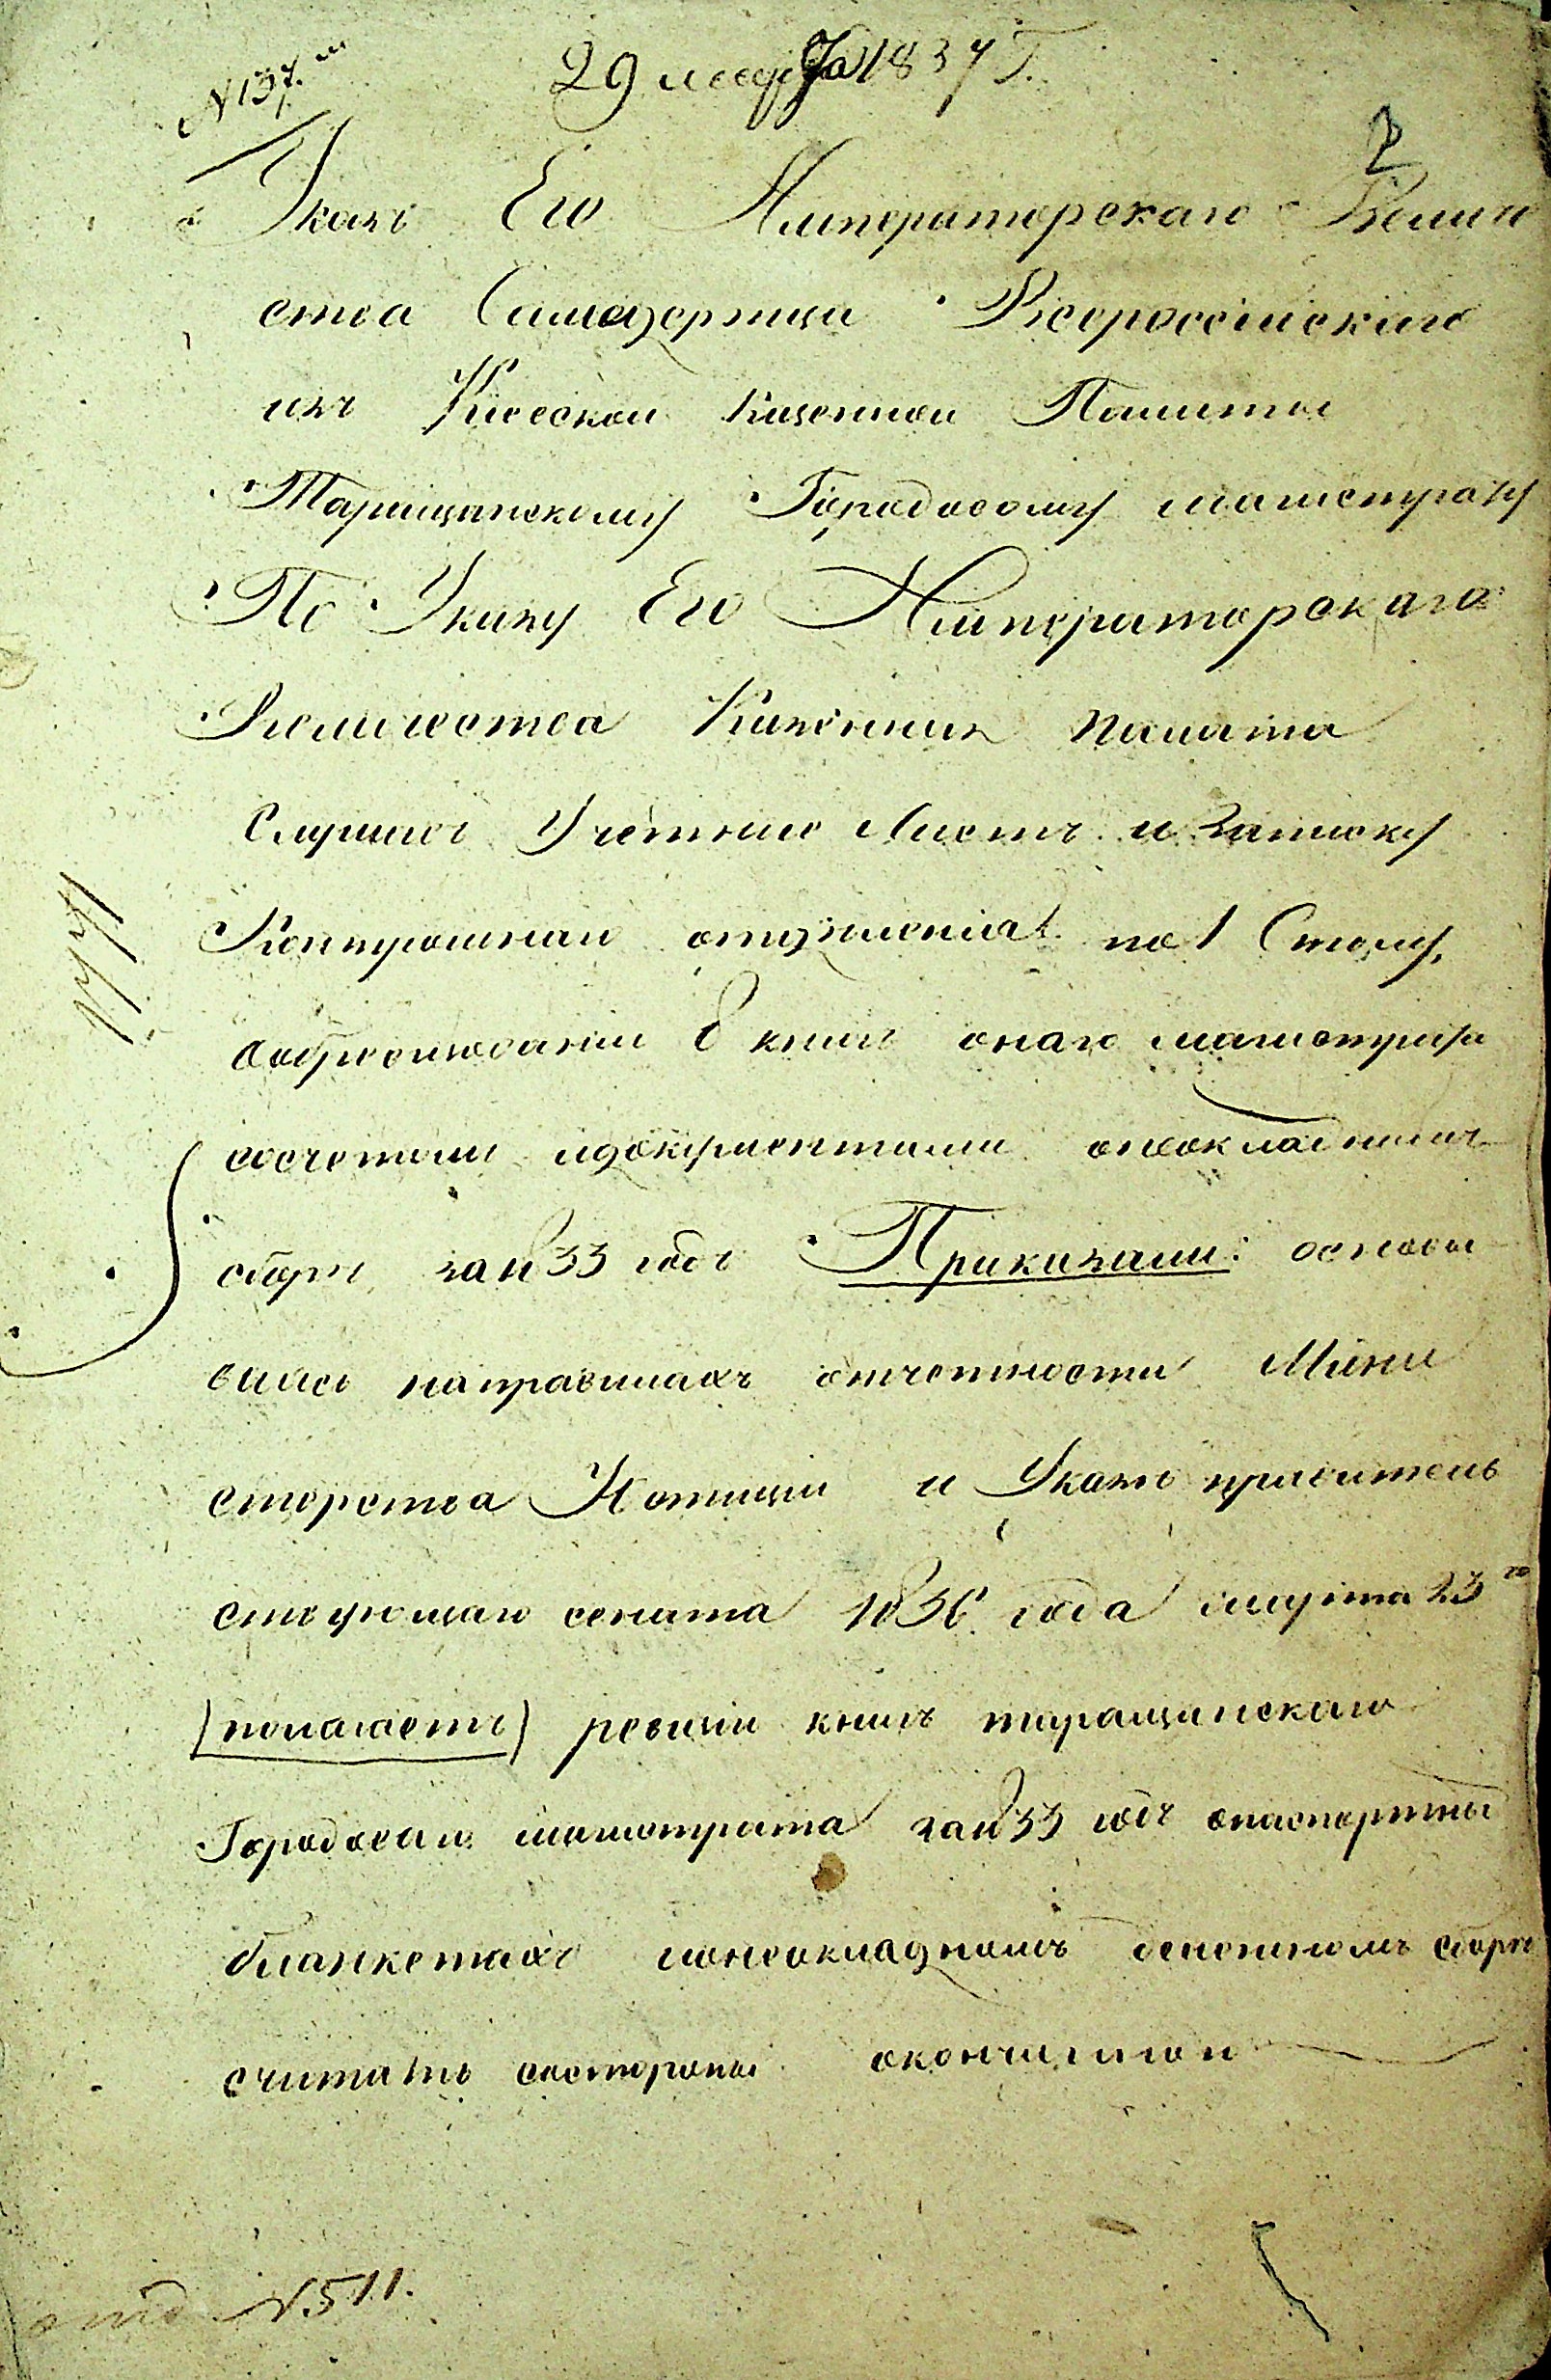 29 марта 1837 г.
N 137.
2
Указъ Его Императорскаго Величе
ства Самодержца Всероссійскаго
изъ Кіевской Казенной Палаты
Таращанскому Городовому магистрату
По Указу Его Императорскаго
Величества Казенная палата
Слушала Учетный Листъ и Записку
Контрольнаго отделенія по 1 Столу,
книги онаго магистрата
сосчетами идокументами онеокладныхъ
сборе за 833 годъ Приказали: основы
ваясь направилахъ отчетности Мини
стерства Юстиціи и Указе правитель
ствующаго сената 1836 года марта 23го
(полагаетъ) ревизіи книгъ таращанскаго
Городоваго магистрата за 833 годъ опаспортны
бланкетахъ инеокладномъ денежномъ сборе
считать состороны окончанной
N 511.